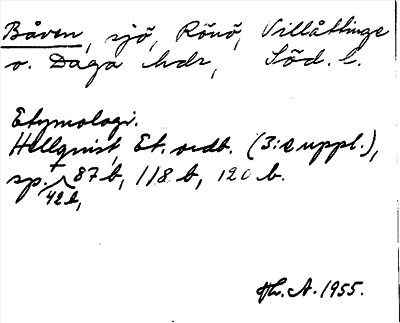 Båven, sjö, Rönö, Villåttinge
o. Daga hdr, Söd. l.
Etymologi.
Hellquist, Et. ordb. (3:e uppl.),
sp. 87 b, 118 b, 120 b.
42 b,
H. A. 1955.